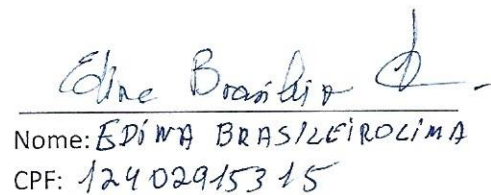 Edine Brasileiro
Nome: EDINA BRASILEIROLIMA
CPF: 12402915315